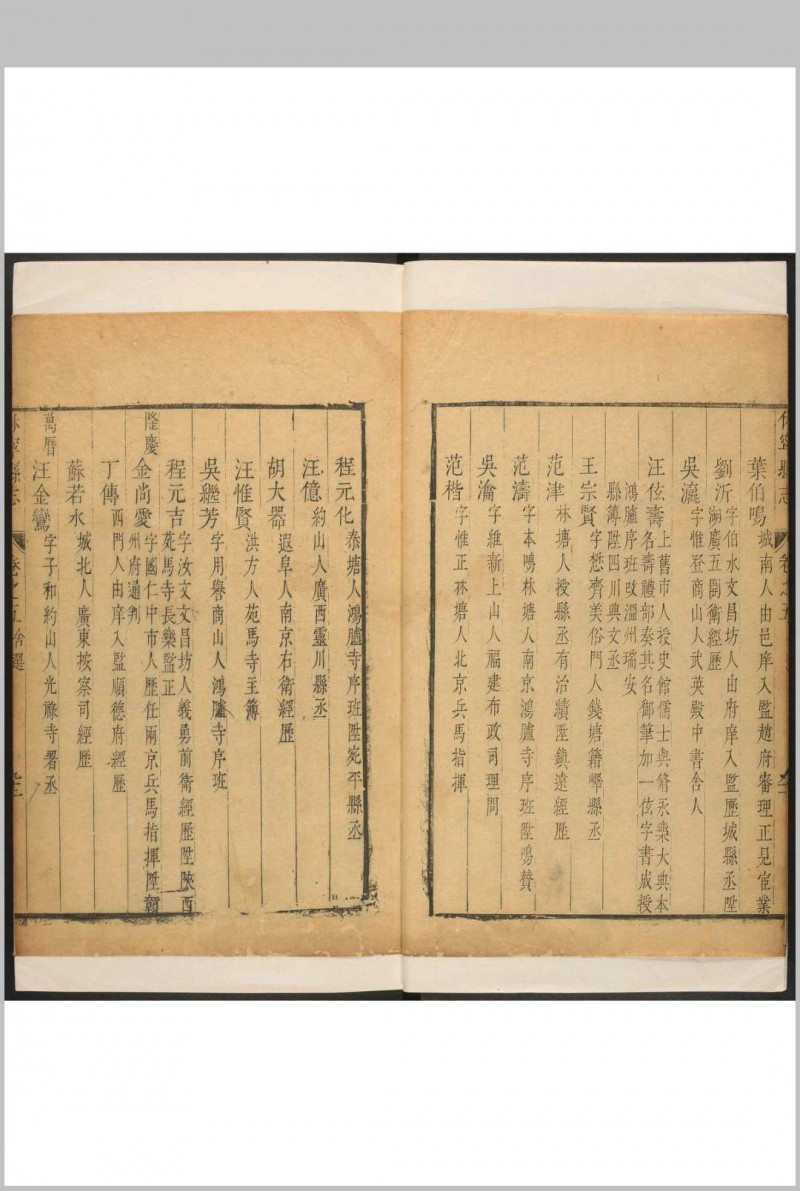 休寧縣志 卷之五
葉伯鳴 城南人由邑庠入監趙府審理正見宦業
劉沂 字伯水文昌坊人由府庠入監歷城縣丞陞
湖廣五開衛經歷
吳瀛 字惟登商山人武英殿中書舍人
汪伭壽 上舊市人授史館儒士與脩永樂大典本
名壽禮部奏其名御筆加一伭字書成授
鴻臚序班改溫州瑞安
縣簿陞四川興文丞
王宗賢 字懋齊美俗門人錢塘籍嶧縣丞
范津 林塘人授縣丞有治績陞鎮遠經歷
范濤 字本鳴林塘人南京鴻臚寺序班陞鳴贊
吳瀹 字維新上山人福建布政司理問
范楷 字惟正林塘人北京兵馬指揮
程元化 泰塘人鴻臚寺序班陞宛平縣丞
汪億 約山人廣西靈川縣丞
胡大器 遐阜人南京右衛經歷
汪惟賢 洪方人苑馬寺主簿
吳繼芳 字用譽商山人鴻臚寺序班
程元吉 字汝文文昌坊人義勇前衛經歷陞陝西
苑馬寺長樂監正
隆慶
金尚愛 字國仁中市人歷任兩京兵馬指揮陞
州府通判
丁傳 西門人由庠入監順德府經歷
蘇若水 城北人廣東按察司經歷
萬曆
汪金鸞 字子和約山人光祿寺署丞
休寧縣志 卷之五 舍選